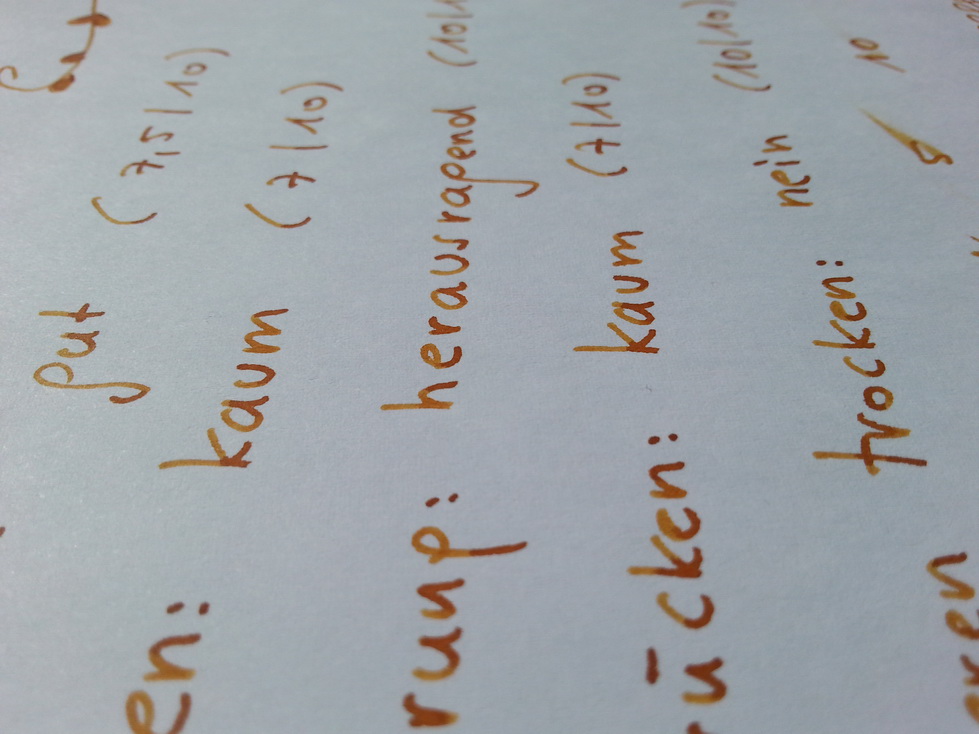 gut (7,5/10)
en: kaum (7/10)
rung: herausragend (10/1
ücken: kaum (7/10)
trocken: nein (10/10)